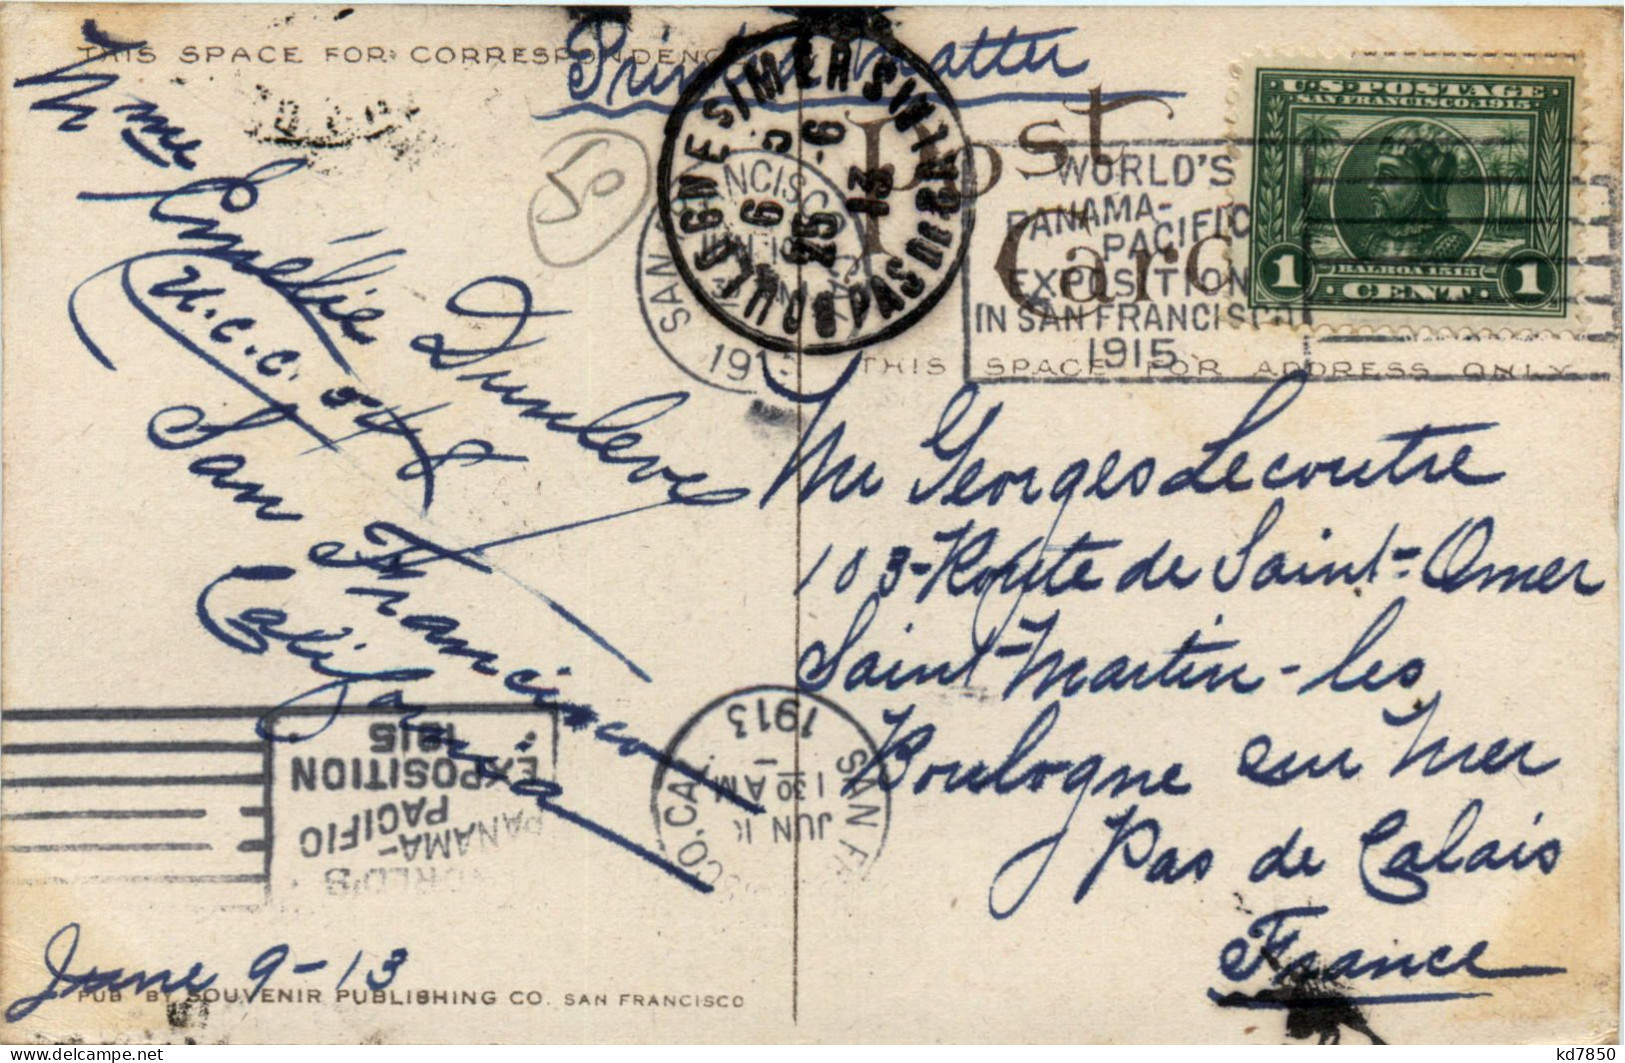 THIS SPACE FOR CORRESPONDENC
Printed Matter
Post
Card
U.S. POSTAGE
SAN FRANCISCO, 1915
BALBOA 1513
1 CENT 1
WORLD'S
PANAMA-
PACIFIC
EXPOSITION
IN SAN FRANCISCO
1915
BOULOGNE SI MER
PAS DE
THIS SPACE FOR ADDRESS ONLY
50
Mme Emélie Dunleve
U.C.C.
San Francisco
California
Mr Georges Lecoutre
103-Route de Saint-Omer
Saint-Martin-les
Boulogne sur Mer
Pas de Calais
France
1915
EXPOSITION
PACIFIC
PANAMA-
WORLD'S
1913
1 30 AM
JUN
June 9-13
PUB BY SOUVENIR PUBLISHING CO. SAN FRANCISCO
kd7850